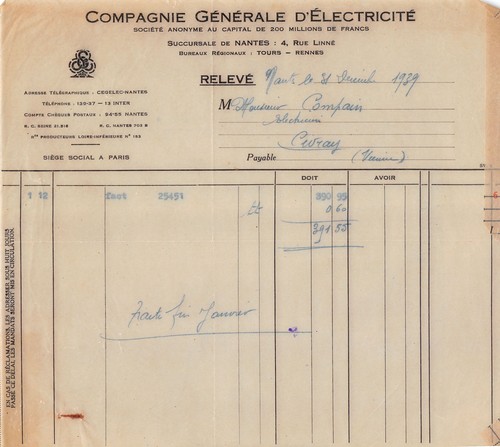 COMPAGNIE GÉNÉRALE D'ÉLECTRICITÉ
SOCIÉTÉ ANONYME AU CAPITAL DE 200 MILLIONS DE FRANCS
SUCCURSALE DE NANTES : 4, RUE LINNÉ
BUREAUX RÉGIONAUX : TOURS - RENNES
RELEVÉ Nantes le 31 Décembre 1939
ADRESSE TÉLÉGRAPHIQUE : CEGELEC-NANTES
TÉLÉPHONE : 120-27 - 12 INTER
COMPTE CHÈQUES POSTAUX : 24-55 NANTES
R. C. SEINE 31.818 R. C. NANTES 702 B
Nos PRODUCTEURS LOIRE-INFÉRIEURE No 193
SIÈGE SOCIAL A PARIS
M Monsieur Compain
électricien
Civray
Payable (Vienne)
DOIT AVOIR
1 12 fact 25451 390 95
0 60
391 55
Traite fin Janvier
EN CAS DE RÉCLAMATIONS, LES ADRESSER SOUS HUIT JOURS
PASSÉ CE DÉLAI, LES MANDATS SERONT MIS EN CIRCULATION.